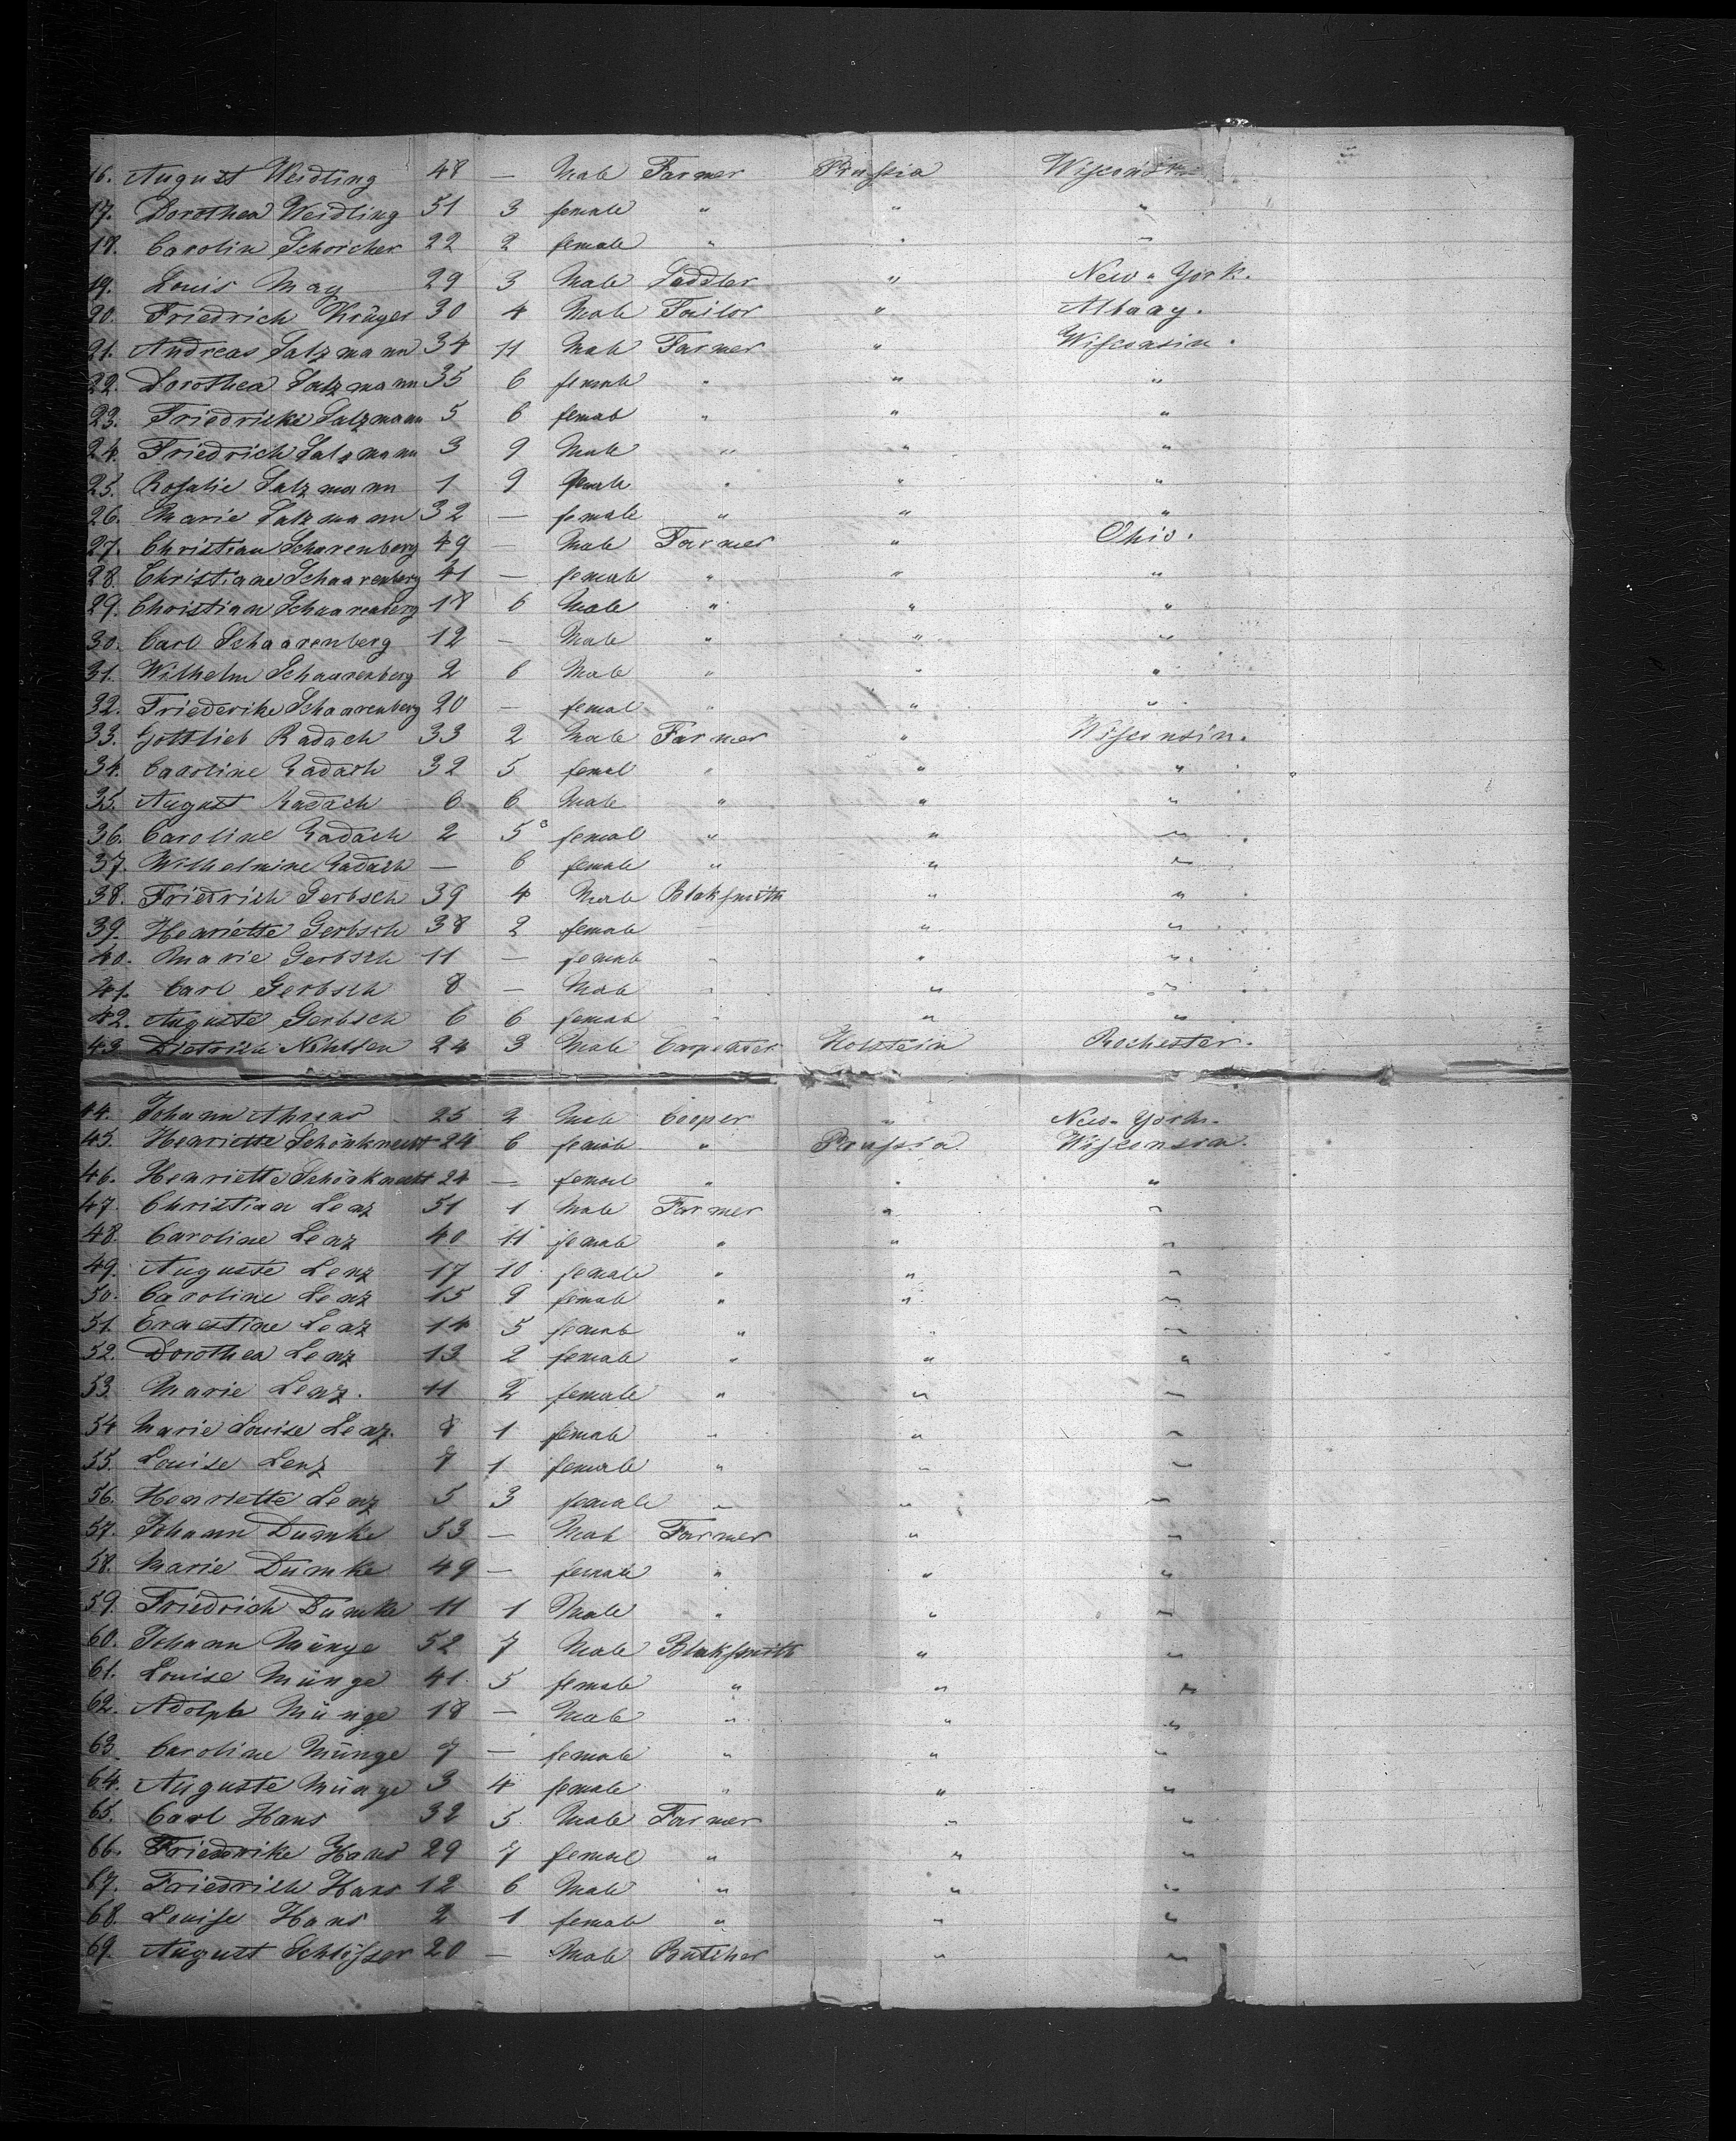 16. August Weidling 48 — Male Farmer Prussia Wisconsin
17. Dorothea Weidling 51 3 female " " "
18. Carolin Schoicher 22 2 female " " "
19. Louis May 29 3 Male Saddler " New-York.
20. Friedrich Krüger 30 4 Male Tailor " Albany.
21. Andreas Salzmann 34 11 Male Farmer " Wisconsin.
22. Dorothea Salzmann 35 6 female " " "
23. Friedricke Salzmann 5 6 female " " "
24. Friedrich Salzmann 3 9 Male " " "
25. Rosalie Salzmann 1 9 female " " "
26. Marie Salzmann 32 — female " " "
27. Christian Scharenberg 49 — Male Farmer " Ohio.
28. Christiane Schaarenberg 41 — female " " "
29. Christian Schaarenberg 18 6 Male " " "
30. Carl Schaarenberg 12 — Male " " "
31. Wilhelm Schaarenberg 2 6 Male " " "
32. Friederike Schaarenberg 20 — femal " " "
33. Gottlieb Radach 33 2 Male Farmer " Wisconsin.
34. Caroline Radach 32 5 femal " " "
35. August Radach 6 6 Male " " "
36. Caroline Radach 2 5 femal " " "
37. Wilhelmine Radach — 6 female " " "
38. Friedrich Gerbsch 39 4 Male Blaksmith " "
39. Henriette Gerbsch 38 2 female " " "
40. Marie Gerbsch 11 — female " " "
41. Carl Gerbsch 8 — Male " " "
42. Auguste Gerbsch 6 6 female " " "
43. Dietrich 24 3 Male Carpenter Holstein Rochester.
44. Johann Ahrens 25 2 Male Cooper " New-York.
45. Henriette Schönknecht 24 6 female " Prussia. Wisconsin.
46. Henriette Schönknecht 24 — femal " " "
47. Christian Lenz 51 1 Male Farmer " "
48. Caroline Lenz 40 11 female " " "
49. Auguste Lenz 17 10 female " " "
50. Caroline Lenz 15 9 female " " "
51. Ernestine Lenz 14 5 female " " "
52. Dorothea Lenz 13 2 female " " "
53. Marie Lenz. 11 2 female " " "
54 Marie Louise Lenz. 8 1 female " " "
55. Louise Lenz 7 1 female " " "
56. Henriette Lenz 5 3 female " " "
57. Johann Dumke 53 — Male Farmer " "
58. Marie Dumke 49 — female " " "
59. Friedrich Dumke 11 1 Male " " "
60. Johann Münge 52 7 Male Blaksmith " "
61. Louise Münge 41. 5 female " " "
62. Adolph Münge 18 — Male " " "
63. Caroline Münge 7 — female " " "
64. Auguste Münge 3 4 female " " "
65. Carl Hans 32 5. Male Farmer " "
66. Friederike Hans 29 7 femal " " "
67. Friedrich Hans 12 6 Male " " "
68. Louise Hans 2 1 female " " "
69. August Schlösser 20 — Male Butcher " "